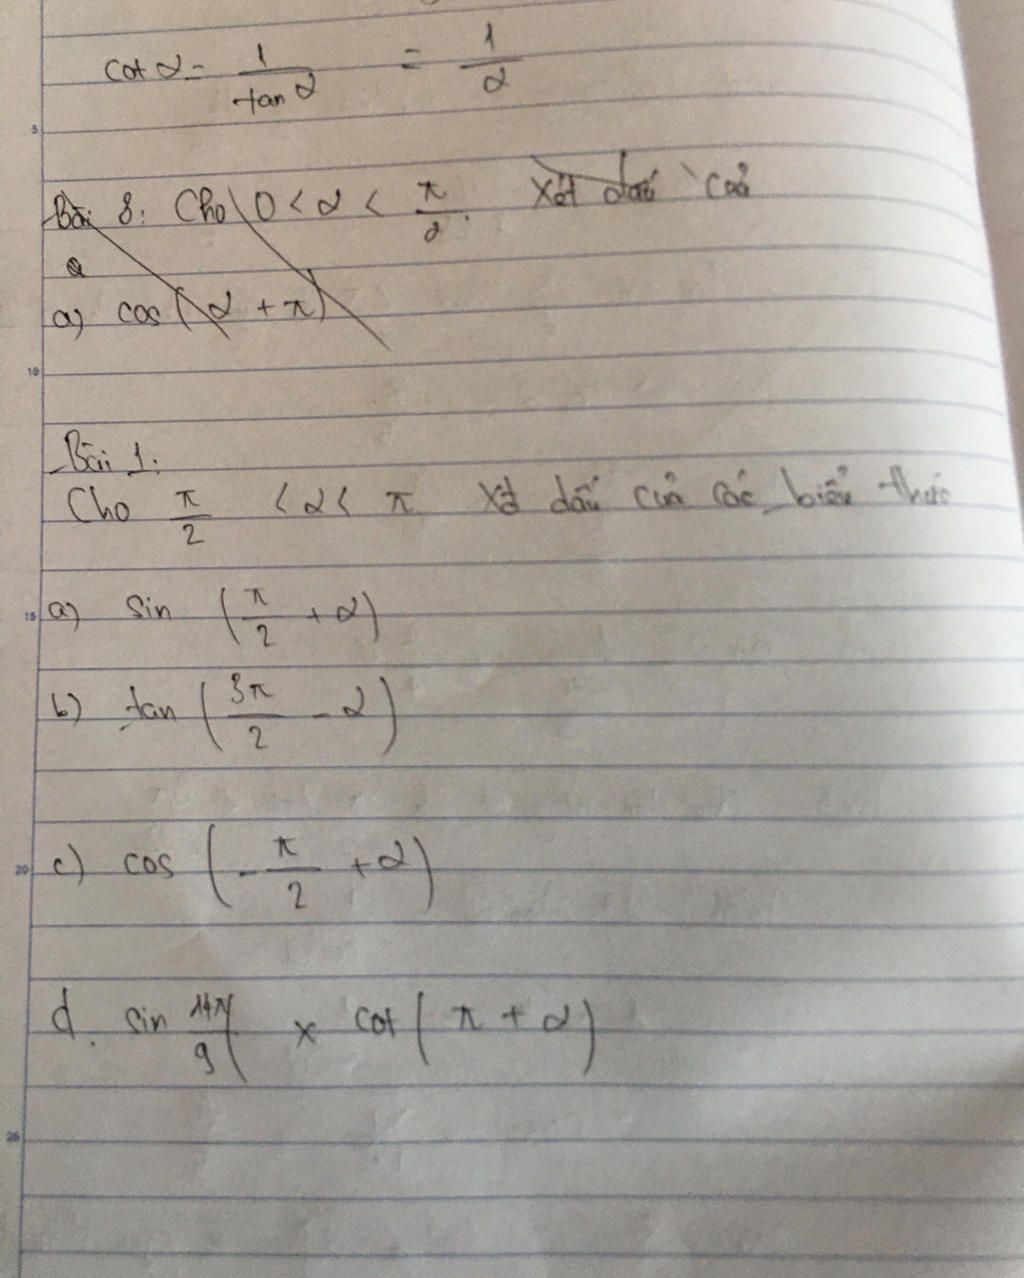 cot α = 1/tan α = 1/2
Bài 8: Cho 0 < α < π/2. Xét dấu của
a
a) cos (α + π)
Bài 1:
Cho π/2 < α < π Xét dấu của các biểu thức
a) sin (π/2 + α)
b) tan (3π/2 - α)
c) cos (-π/2 + α)
d. sin 14π/9 × cot (π + α)
5
10
15
20
25